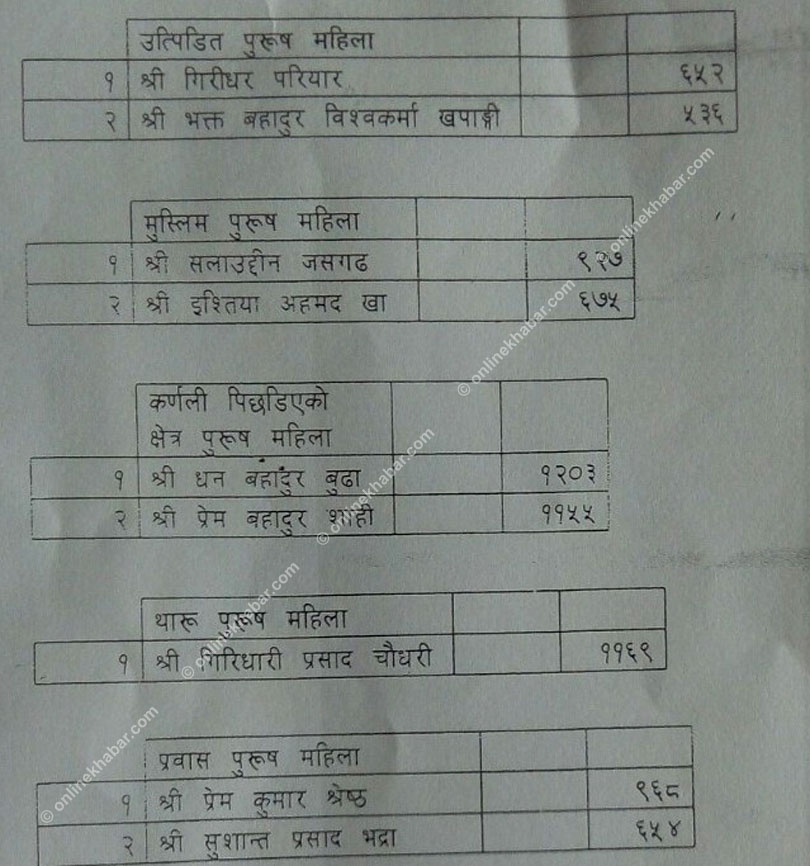 उत्पिडित पुरूष महिला
१ श्री गिरीधर परियार ६५२
२ श्री भक्त बहादुर विश्वकर्मा खपाङ्गी ५३६
मुस्लिम पुरूष महिला
१ श्री सलाउद्दीन जसगढ ९२७
२ श्री इश्तिया अहमद खा ६७५
कर्णली पिछडिएको
क्षेत्र पुरूष महिला
१ श्री धन बहादुर बुढा १२०३
२ श्री प्रेम बहादुर शाही ११५५
थारू पुरूष महिला
१ श्री गिरिधारी प्रसाद चौधरी ११६९
प्रवास पुरूष महिला
१ श्री प्रेम कुमार श्रेष्ठ ९६८
२ श्री सुशान्त प्रसाद भद्रा ६५४
© onlinekhabar.com
© onlinekhabar.com
© onlinekhabar.com
© onlinekhabar.com
© onlinekhabar.com